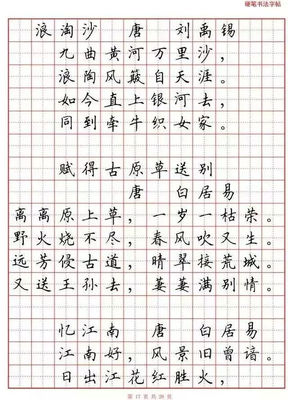 硬笔书法字帖
浪淘沙 唐 刘禹锡
九曲黄河万里沙，
浪陶风簸自天涯。
如今直上银河去，
同到牵牛织女家。
赋得古原草送别
唐 白居易
离离原上草，一岁一枯荣。
野火烧不尽，春风吹又生。
远芳侵古道，晴翠接荒城。
又送王孙去，萋萋满别情。
忆江南 唐 白居易
江南好，风景旧曾谙。
日出江花红胜火，